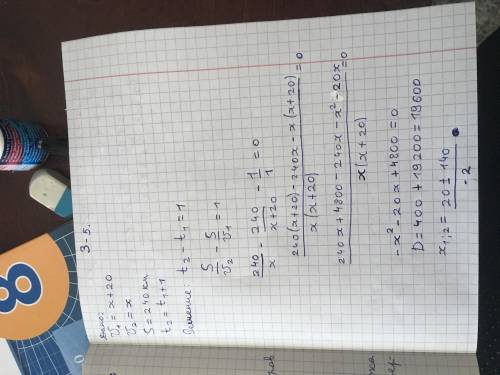 3-5.
Дано:
V₁ = x+20
V₂ = x
S = 240 км
t₂ = t₁+1
Решение: t₂ - t₁ = 1
S/V₂ - S/V₁ = 1
240/x - 240/(x+20) - 1/1 = 0
(240(x+20) - 240x - x(x+20))/(x(x+20)) = 0
(240x + 4800 - 240x - x² - 20x)/(x(x+20)) = 0
-x² - 20x + 4800 = 0
D = 400 + 19200 = 19600
x₁;₂ = (20 ± 140)/(-2)
8